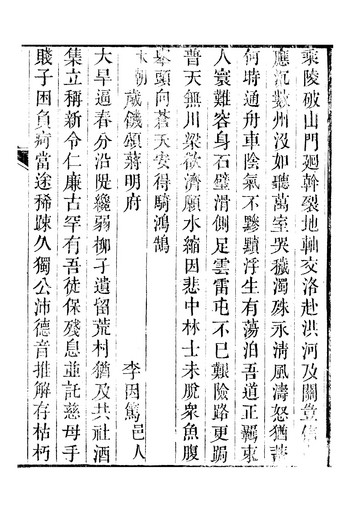 乘陵破山門廻斡裂地軸交洛赴洪河及關豈信
應沉數州沒如聽萬室哭穢濁殊未清風濤怒猶蓄
何時通舟車陰氣不黲黷浮生有蕩泊吾道正羈束
人寰難容身石壁滑側足雲雷屯不已艱險路更跼
普天無川梁欲濟願水縮因悲中林士未脫衆魚腹
舉頭向蒼天安得騎鴻鵠
本朝 歲饑頌蔣明府 李因篤邑人
大旱逼春分沿隄纔弱柳子遺留荒村猶及共社酒
集立稱新令仁廉古罕有吾徒保殘息並託慈母手
賤子困負痾當途稀踈久獨公沛德音推解存枯朽